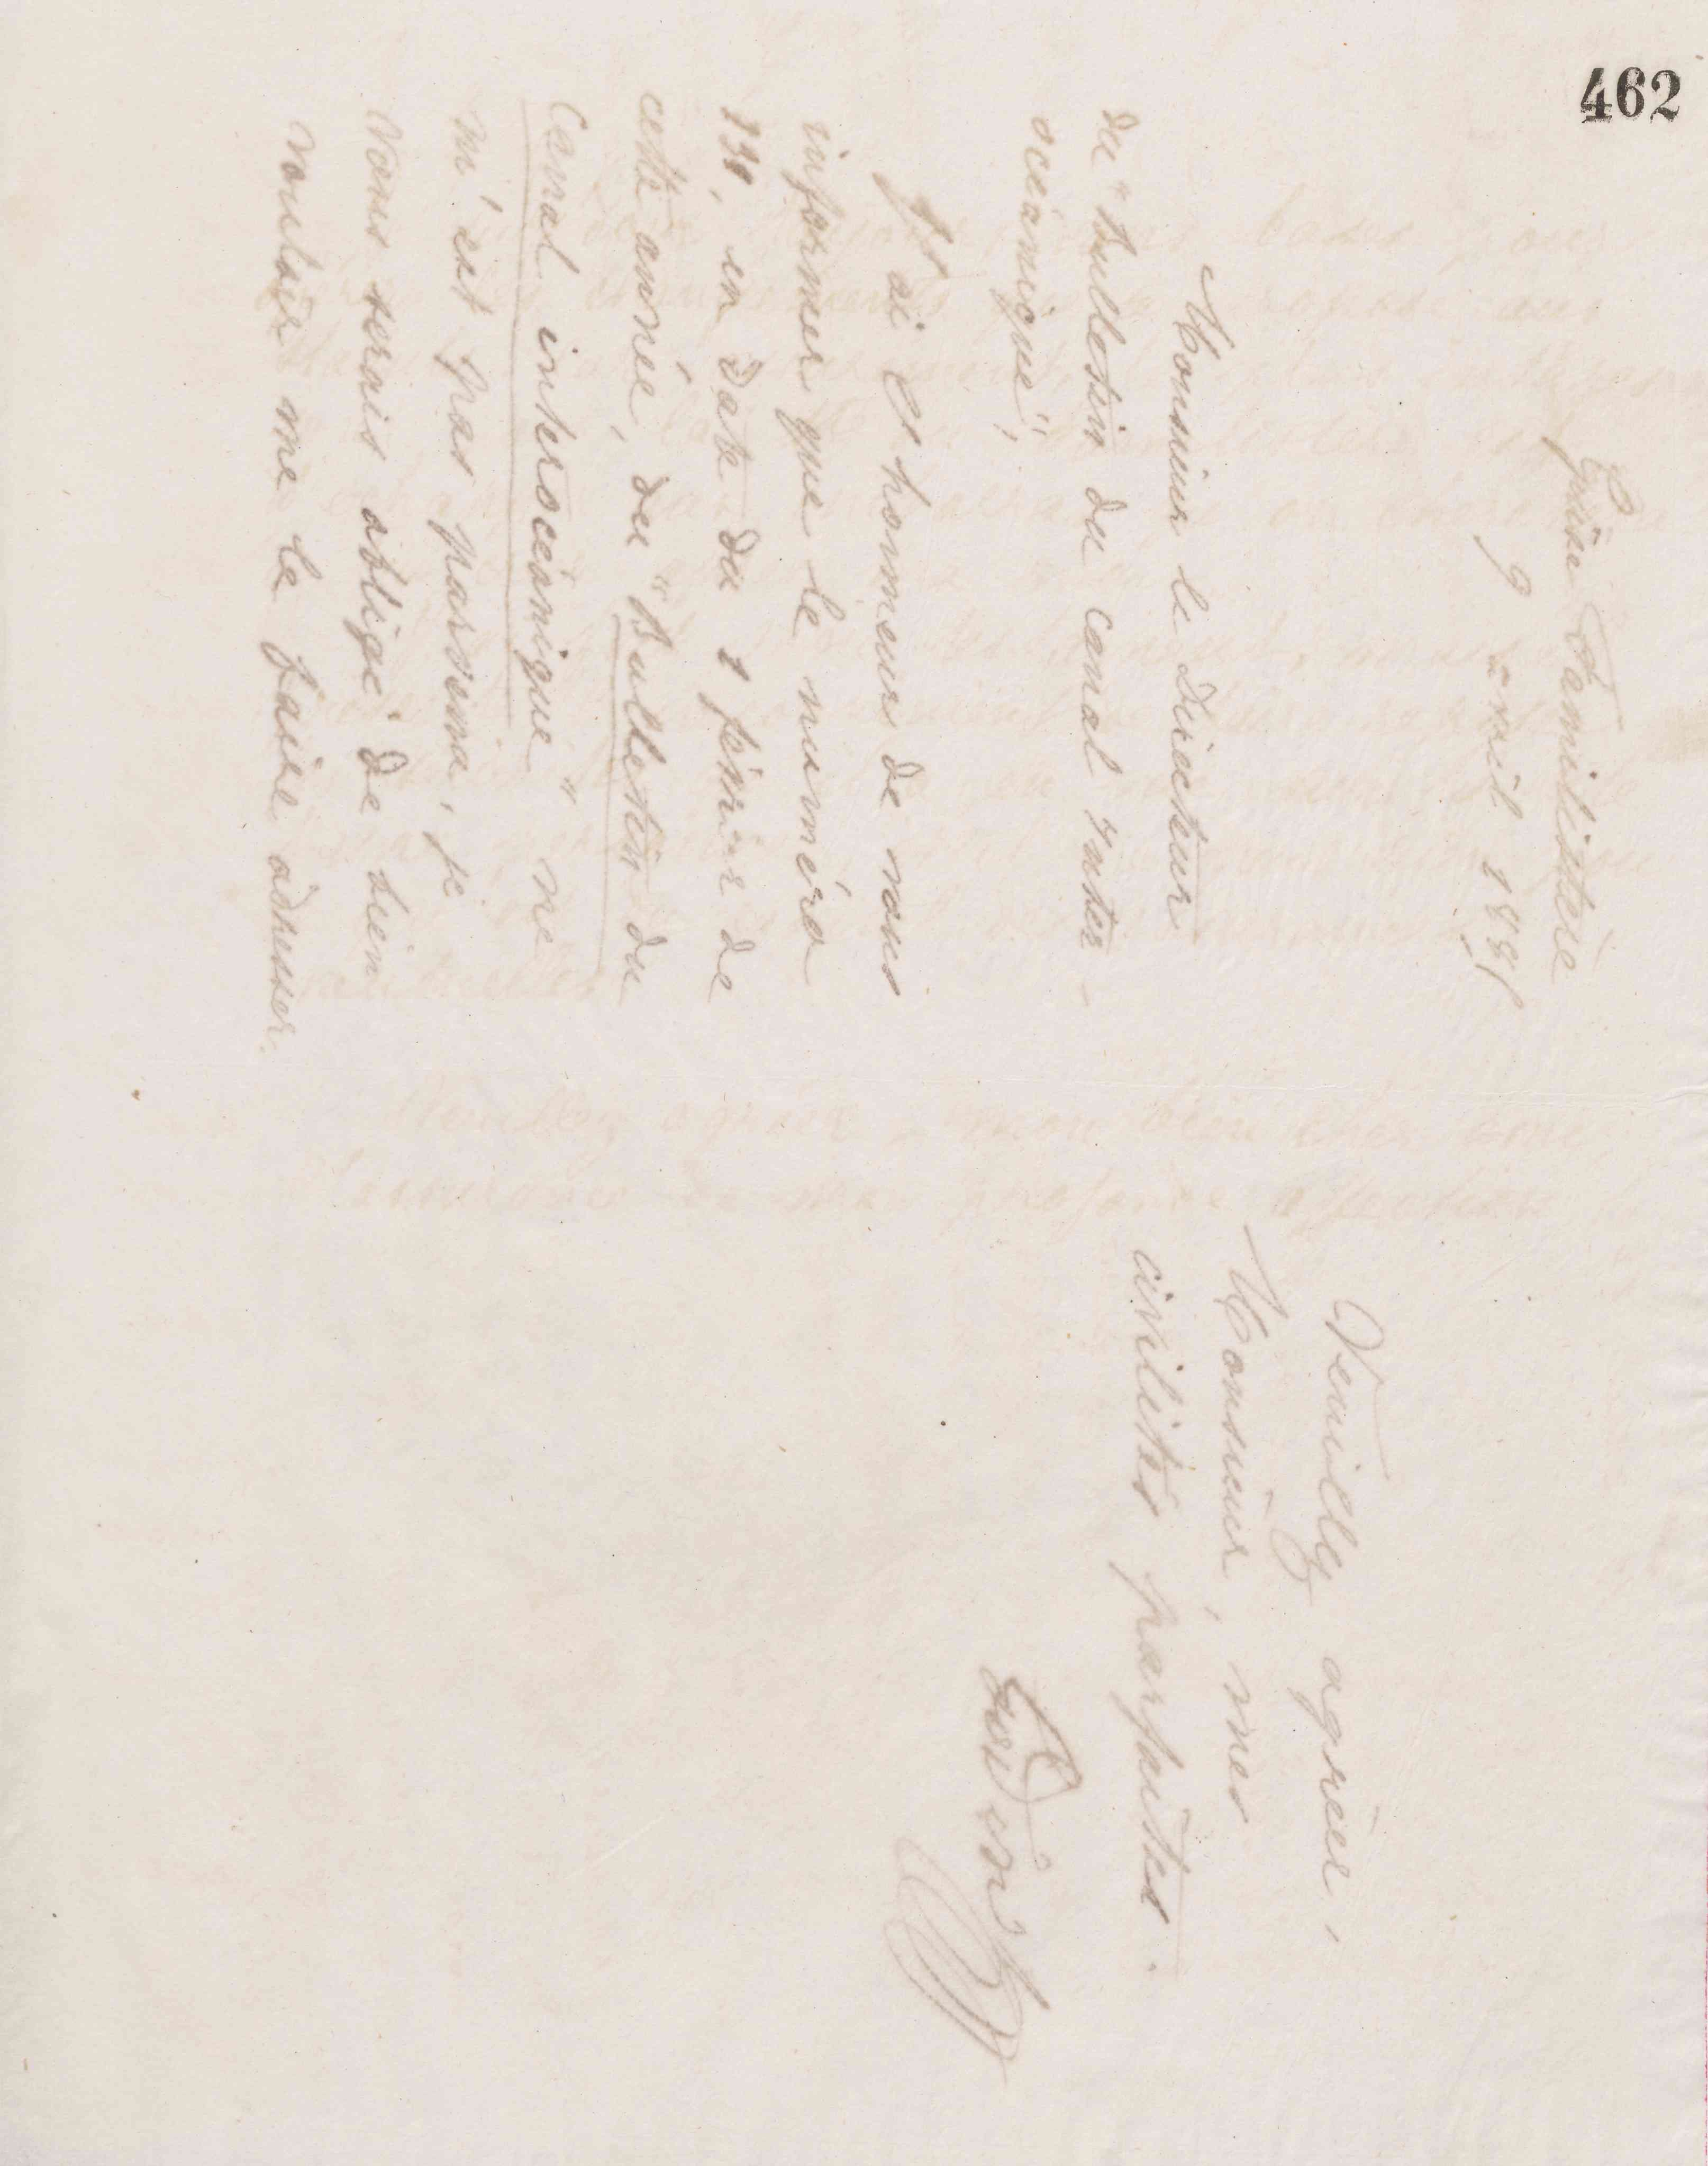 462
Guise Familistère
9 avril 1885
Monsieur le Directeur
du "Bulletin du canal Inter-
océanique",
J'ai l'honneur de vous
informer que le numéro
131, en date du 1 février de
cette année, du "Bulletin du
Canal interocéanique" ne
m'est pas parvenu, je
vous serais obligé de bien
vouloir me le faire adresser.
Veuillez agréer,
Monsieur, mes
civilités parfaites.
Godin